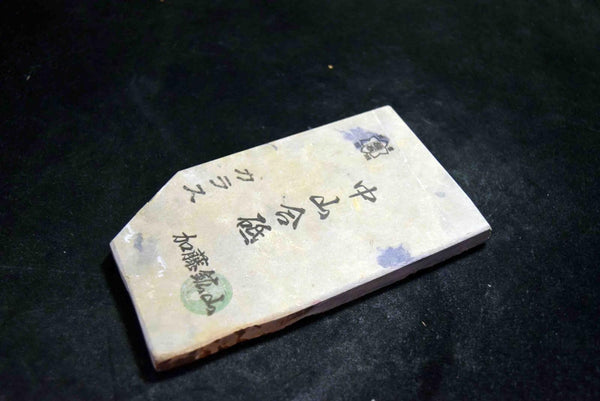 中山合砥
カラス
加藤鉱山